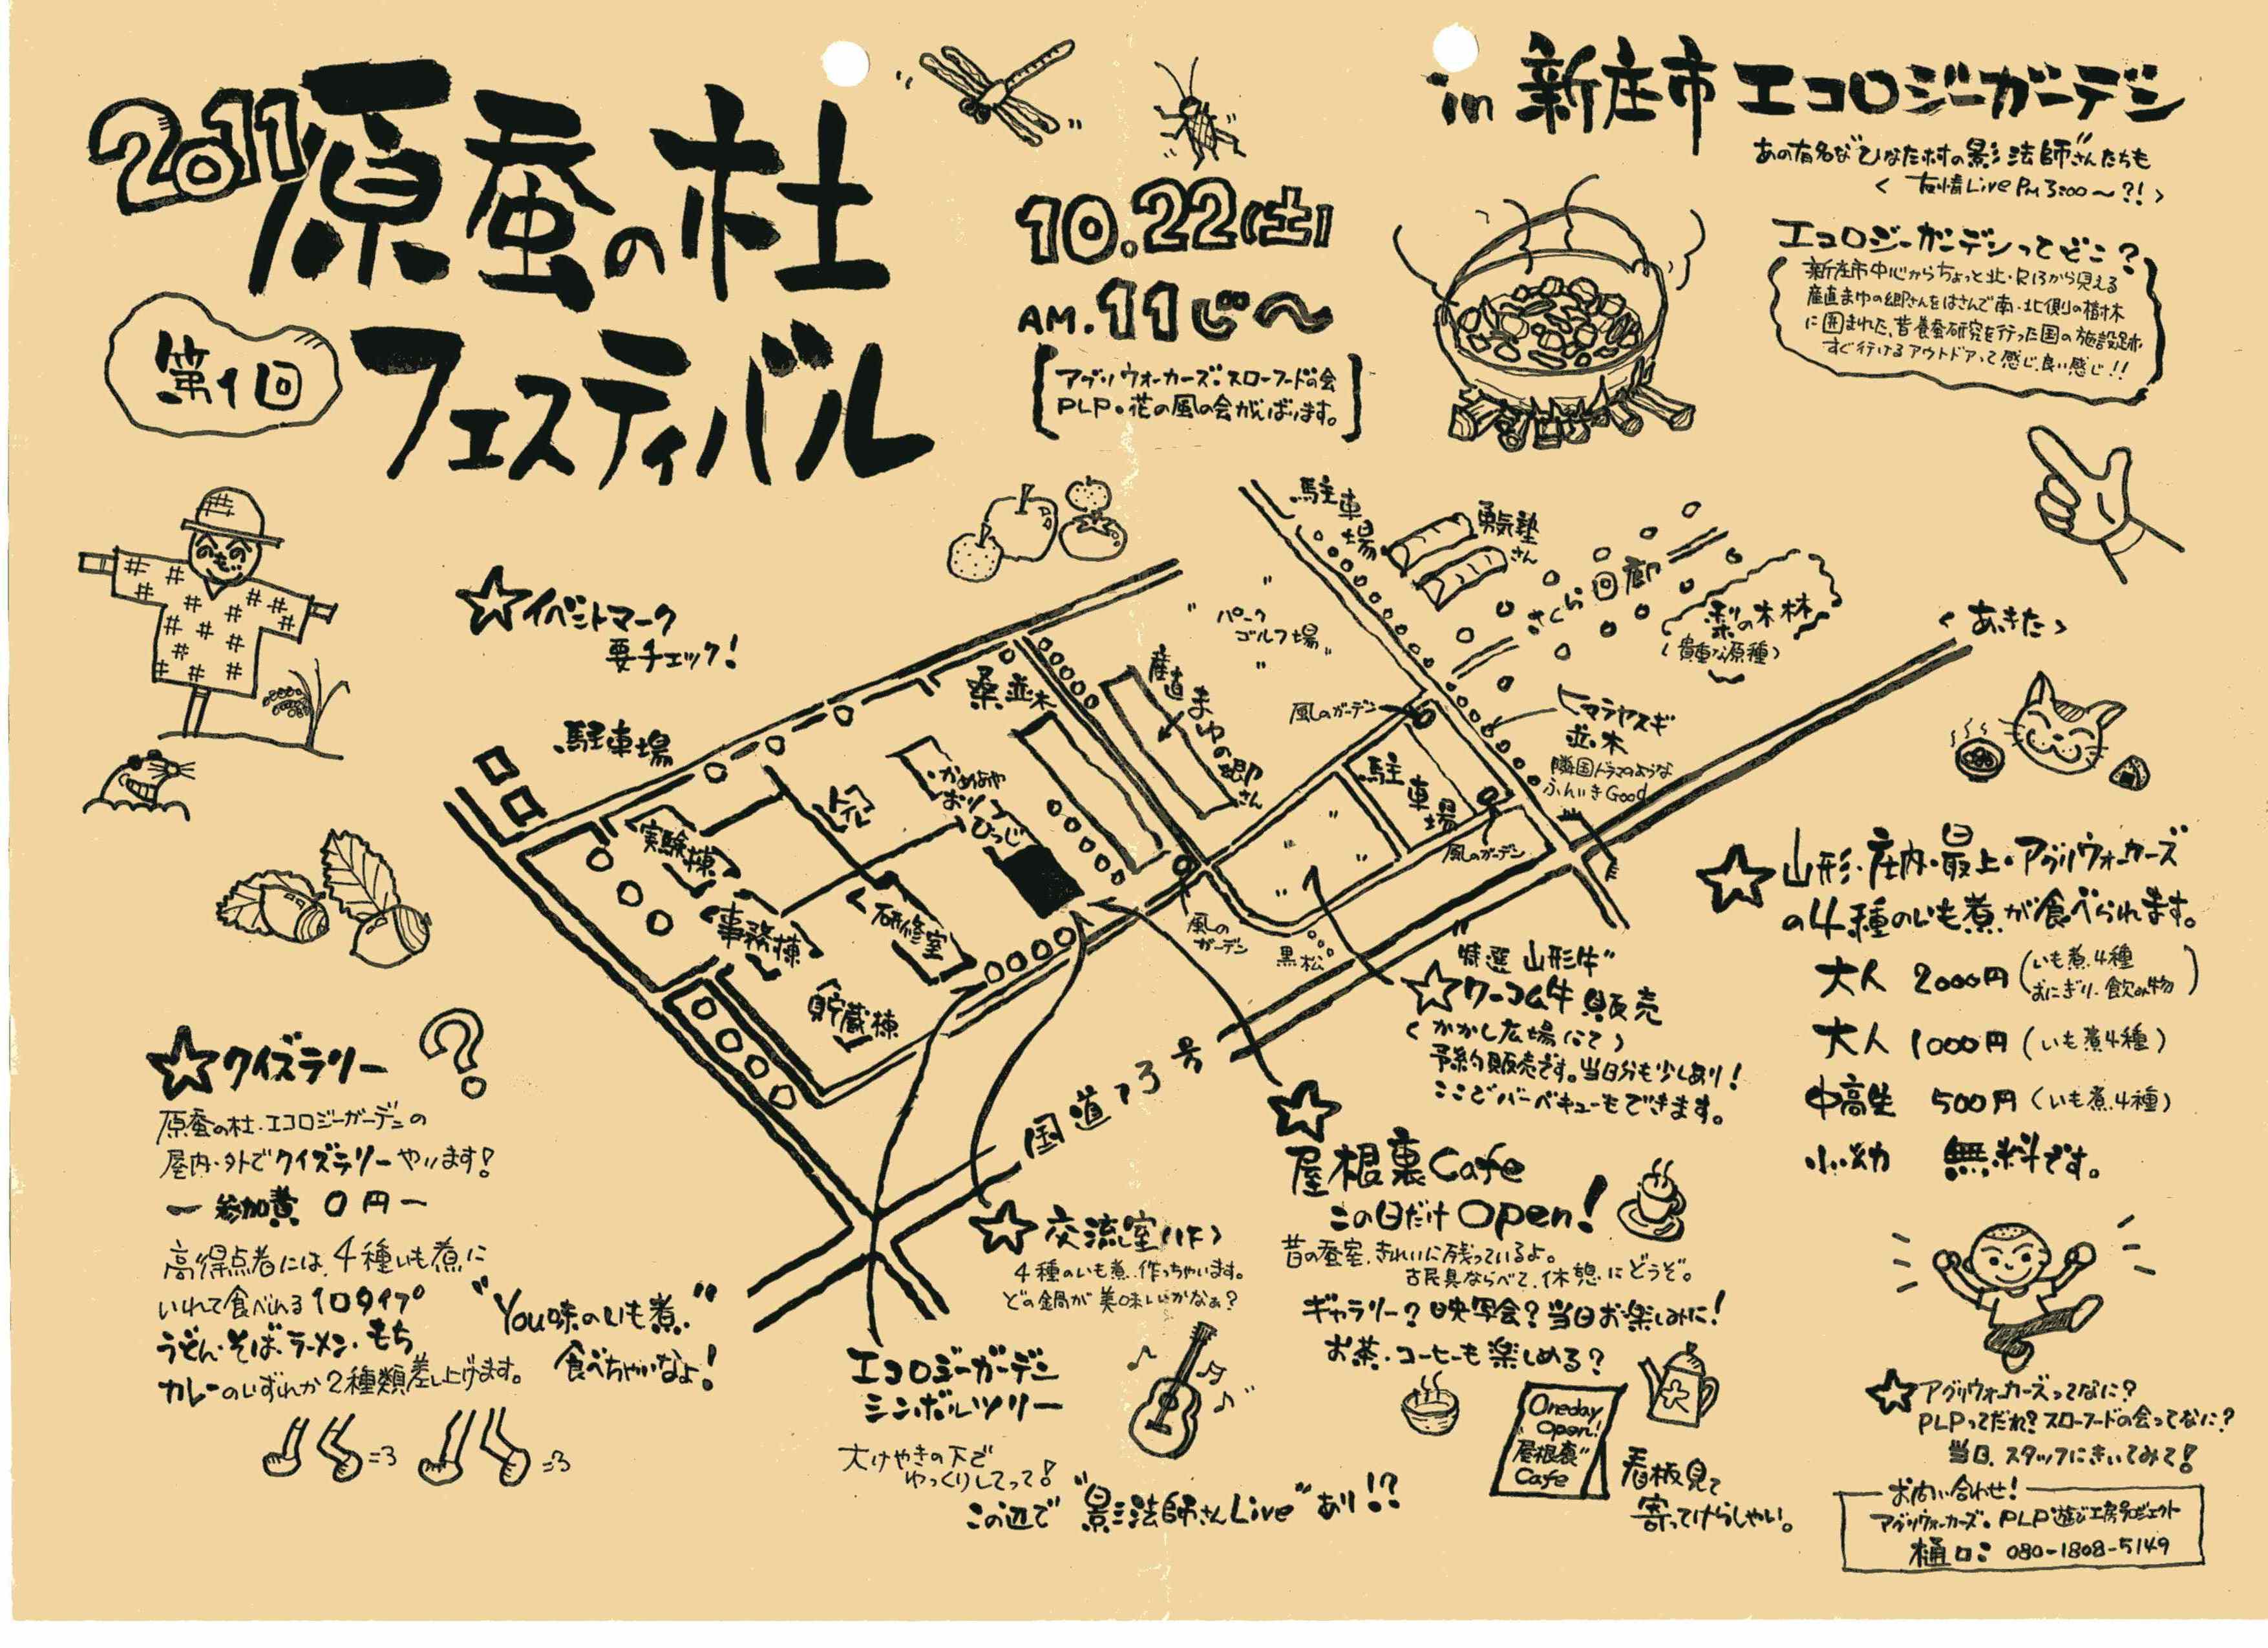 2011 原蚕の杜
第1回 フェスティバル
10.22(土)
AM.11じ〜
アグリウォーカーズ・スローフードの会
PLP・花の風の会がんばります。
in 新庄市エコロジーガーデン
あの有名な"ひなた村の影法師"さんたちも
< 友情Live PM3:00〜?! >
エコロジーガーデンってどこ?
新庄市中心からちょっと北・R13から見える
産直まゆの郷さんをはさんで南・北側の樹木
に囲まれた、昔養蚕研究を行った国の施設跡
すぐ行けるアウトドアって感じ、良い感じ!!
☆イベントマーク
要チェック!
駐車場
桑並木
パーク
ゴルフ場
産直まゆの郷さん
駐車場
勇気塾さん
さくら回廊
梨の木林
(貴重な原種)
<あきた>
風のガーデン
ヒマラヤスギ
並木
隣国ドラマのような
ふんいきGood
駐車場
風のガーデン
風の
ガーデン
黒松
トイレ
かめあや
おり
ひつじ
実験棟
事務棟
研修室
貯蔵棟
国道13号
☆クイズラリー
原蚕の杜・エコロジーガーデンの
屋内・外でクイズラリーやります!
ー参加費 0円ー
高得点者には、4種いも煮に
いれて食べれる10タイプ
うどん・そば・ラーメン・もち
カレーのいずれか2種類差し上げます。
"You味のいも煮"
食べちゃいなよ!
エコロジーガーデン
シンボルツリー
大けやきの下で
ゆっくりしてって!
この辺で"影法師さんLive"あり!?
☆交流室
4種のいも煮、作っちゃいます。
どの鍋が美味しいかなぁ?
"特選山形牛"
☆ワーコム牛販売
(かかし広場にて)
予約販売です。当日分も少しあり!
ここでバーベキューもできます。
☆
屋根裏Cafe
この日だけOpen!
昔の蚕室、きれいに残っているよ。
古民具ならべて、休憩にどうぞ。
ギャラリー?映写会?当日お楽しみに!
お茶・コーヒーも楽しめる?
Oneday
Open!
屋根裏
Cafe
看板見て
寄ってけらしゃい。
☆山形・庄内・最上・アグリウォーカーズ
の4種のいも煮が食べられます。
大人 2000円(いも煮4種 おにぎり・飲み物)
大人 1000円(いも煮4種)
中高生 500円(いも煮4種)
小・幼 無料です。
☆アグリウォーカーズってなに?
PLPってだれ?スローフードの会ってなに?
当日、スタッフにきいてみて!
お問い合わせ!
アグリウォーカーズ・PLP遊び工房プロジェクト
樋口: 080-1808-5149